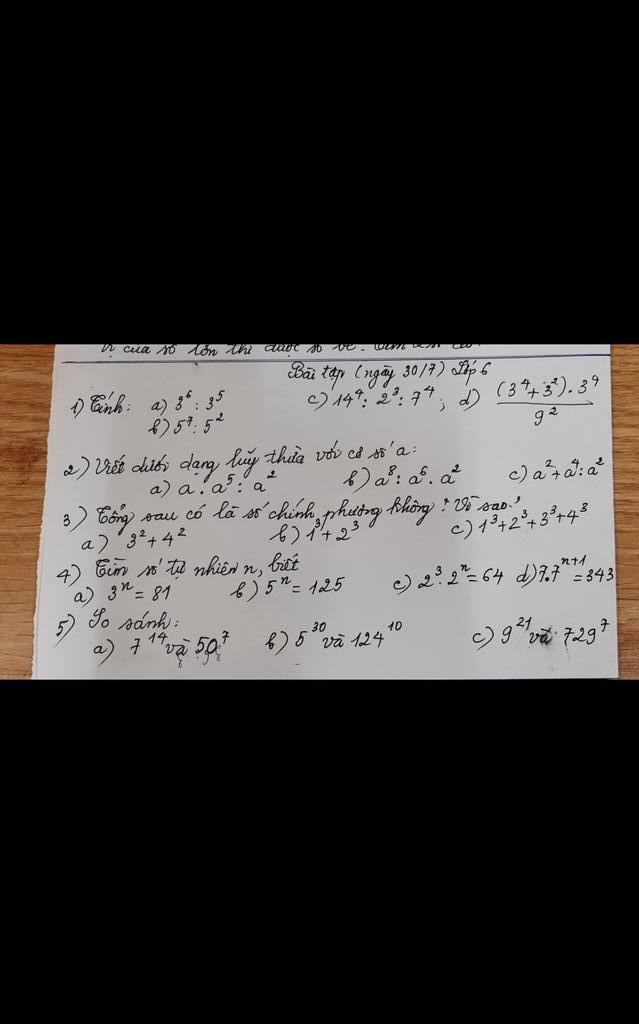 vị của số lớn thì được số bé. Tìm 2 số đó.
Bài tập (ngày 30/7) Lớp 6
1) Tính: a) 3⁶ : 3⁵ c) 14⁴ : 2³ : 7⁴ ; d) (3⁴ + 3²) . 3⁴ / 9²
b) 5⁷ : 5²
2) Viết dưới dạng luỹ thừa với cơ số a:
a) a . a⁵ : a² b) a⁸ : a⁶ . a² c) a² + a⁴ : a²
3) Tổng sau có là số chính phương không? Vì sao?
a) 3² + 4² b) 1³ + 2³ c) 1³ + 2³ + 3³ + 4³
4) Tìm số tự nhiên n, biết
a) 3ⁿ = 81 b) 5ⁿ = 125 c) 2³ . 2ⁿ = 64 d) 7.7ⁿ⁺¹ = 343
5) So sánh:
a) 7¹⁴ và 50⁷ b) 5³⁰ và 124¹⁰ c) 9²¹ và 729⁷